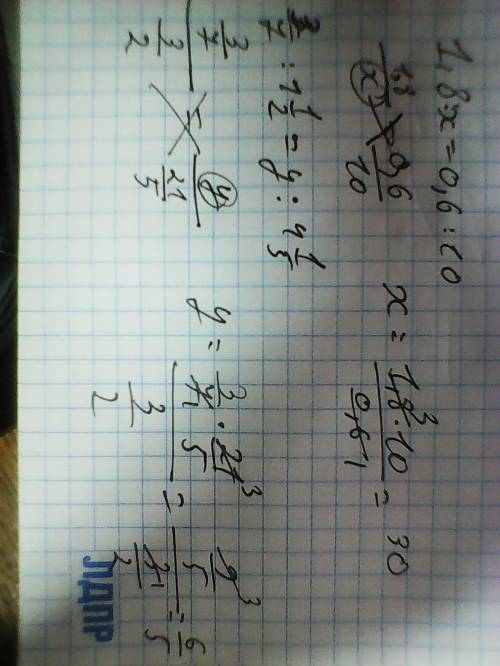 1,8:x=0,6:10
1,8/x = 0,6/10    x = (1,8³·10)/(0,6 1) = 30
3/7 : 1 1/2 = y : 4 1/5
(3/7)/(3/2) = y/(21/5)    y = (3/7 1 · 21 3/5)/(3/2) = (9 3/5)/(3 1/2) = 6/5
ЛДПР